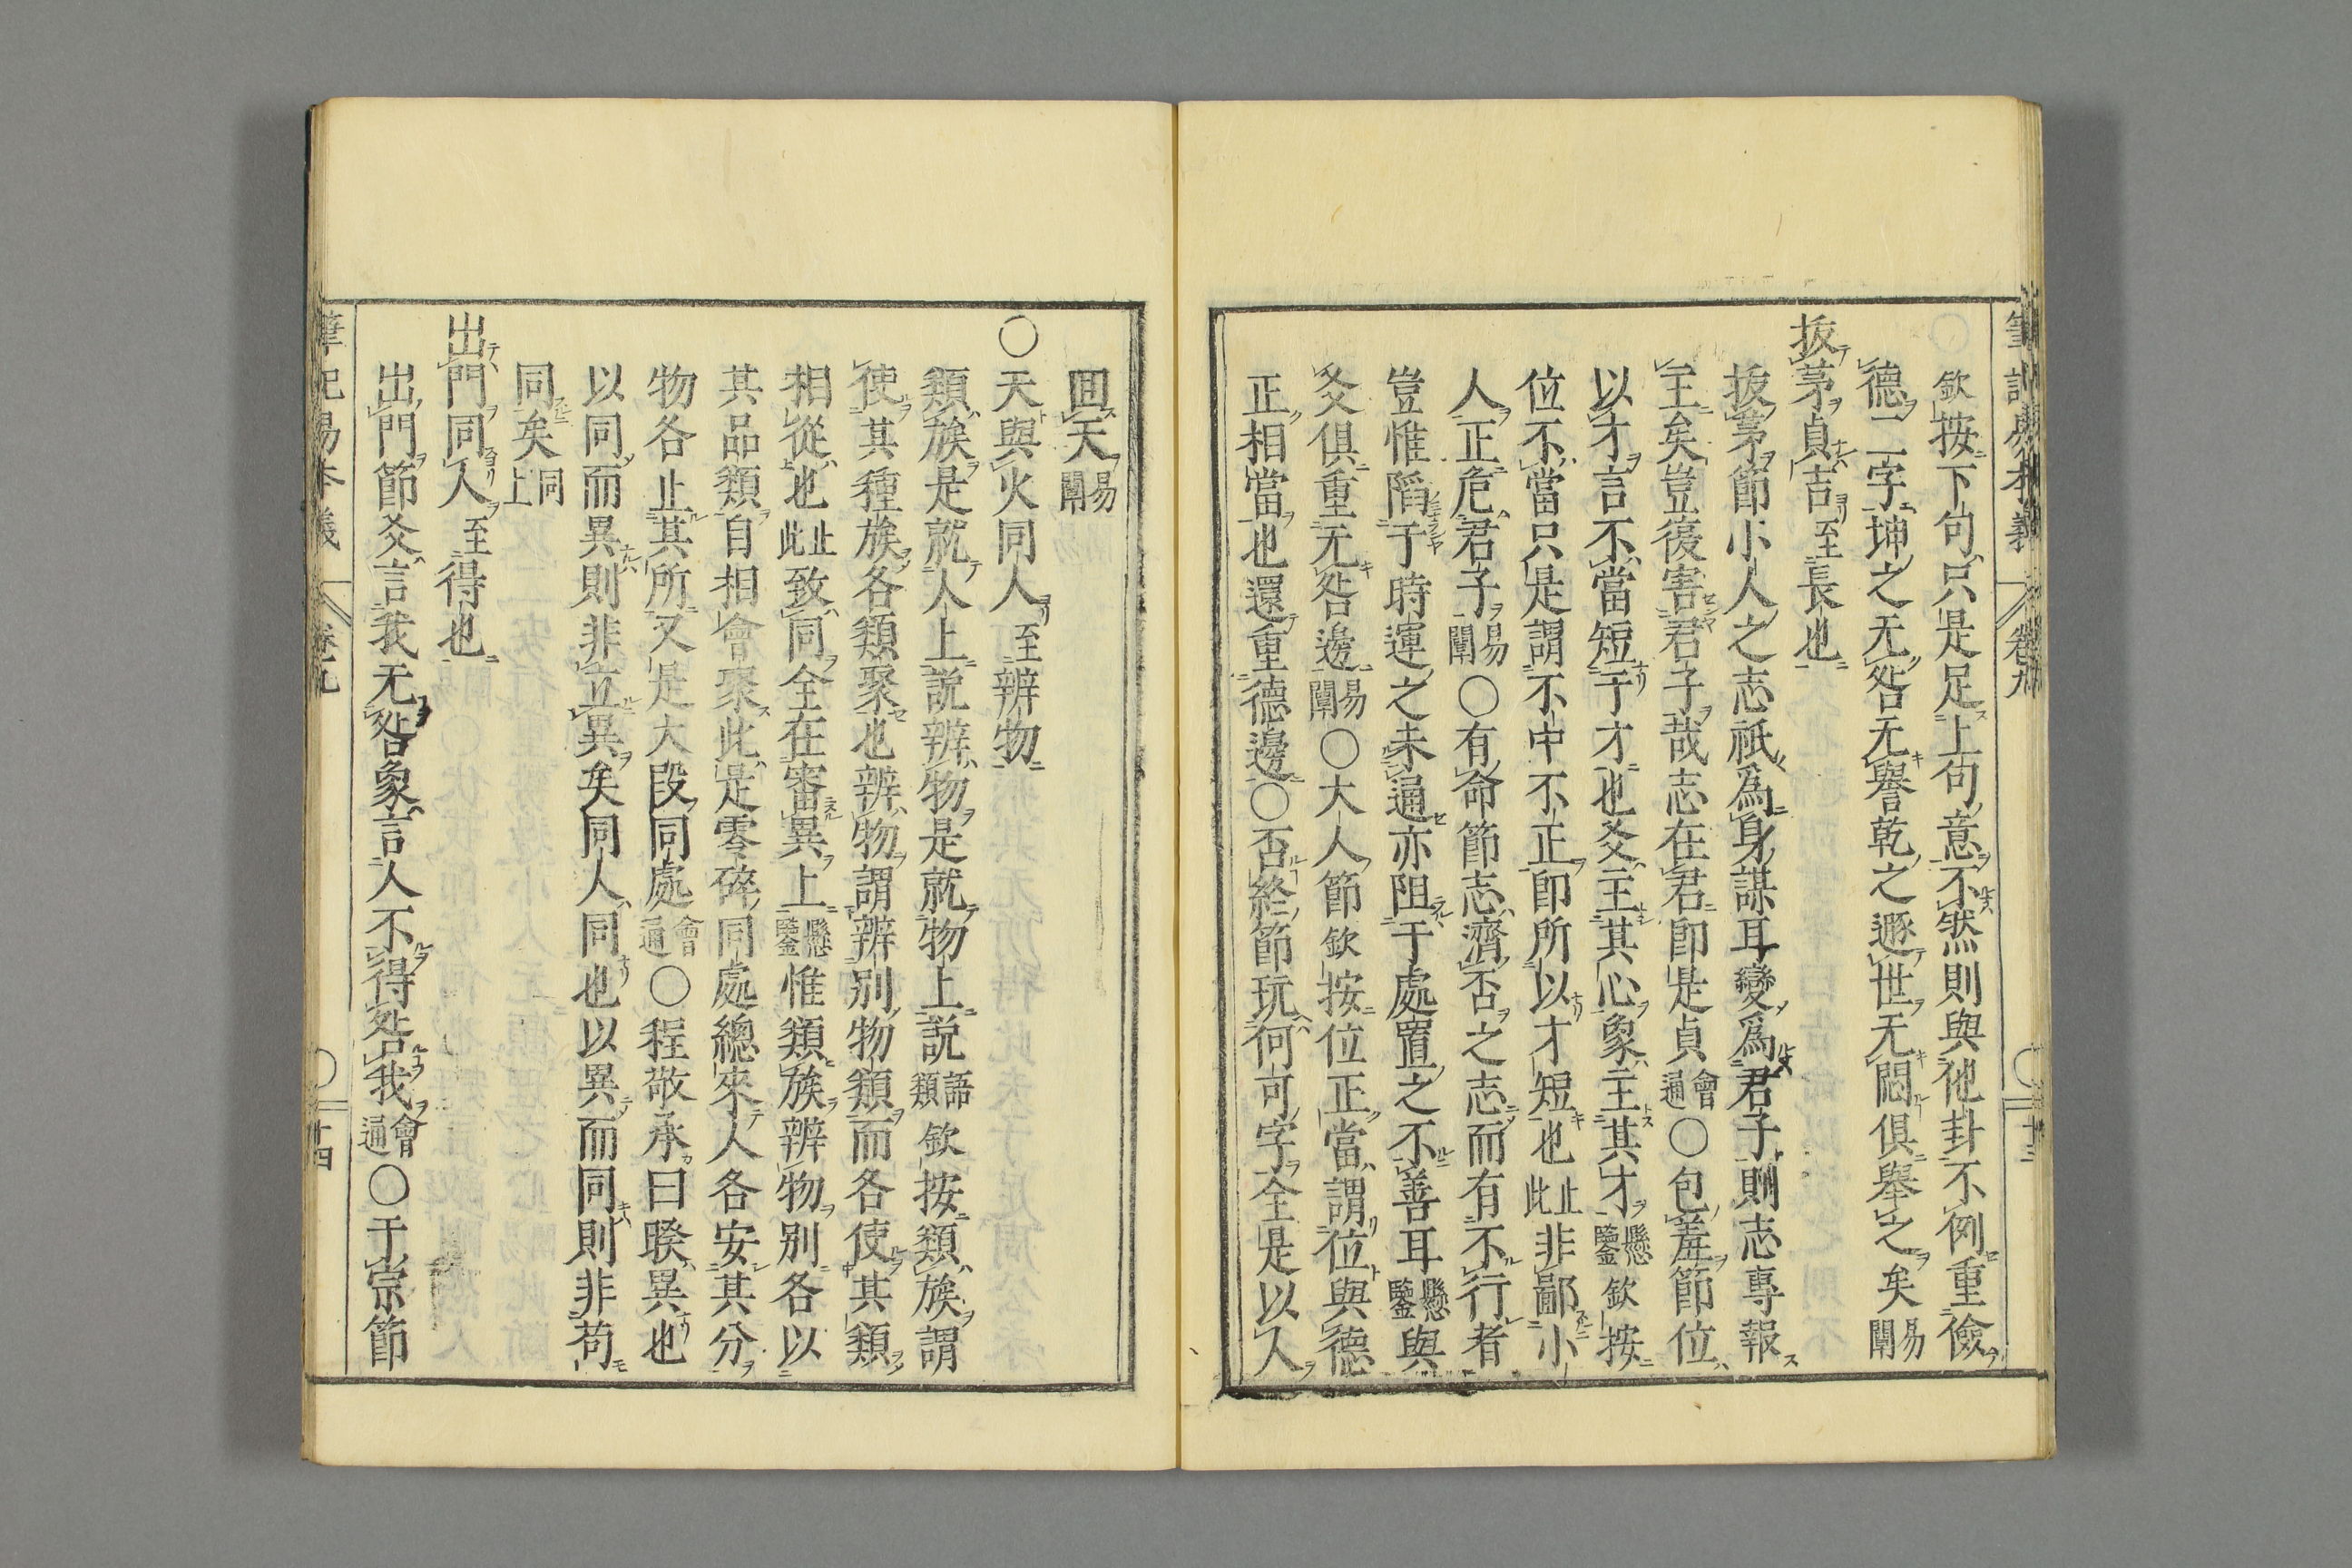 筆記易本義 卷九 十三
欽按下句只是足上句意不然則與他卦不例重儉
德二字坤之无咎无譽乾之遯世无悶俱舉之矣易闡
拔茅貞吉至長也
拔茅節小人之志祇爲身謀耳變爲君子則志專報
主矣豈復害君子哉志在君即是貞會通○包羞節位
以才言不當短于才也爻主其心象主其才懸鑒欽按
位不當只是謂不中不正即所以才短也止此非鄙小
人正危君子易闡○有命節志濟否之志而有不行者
豈惟陷于時運之未通亦阻于處置之不善耳懸鑒與
爻俱重无咎邊易闡○大人節欽按位正當謂位與德
正相當也還重德邊○否終節玩何可字全是以人
回天易闡
○天與火同人至辨物
類族是就人上說辨物是就物上說語類欽按類族謂
使其種族各類聚也辨物謂辨別物類而各使其類
相從也止此致同全在審異上懸鑒惟類族辨物別各以
其品類自相會聚此是零碎同處總來人各安其分
物各止其所又是大段同處會通○程敬承曰睽異也
以同而異則非立異矣同人同也以異而同則非苟
同矣同上
出門同人至得也
出門節爻言我无咎象言人不得咎我會通○于宗節
筆記易本義 卷九 十四